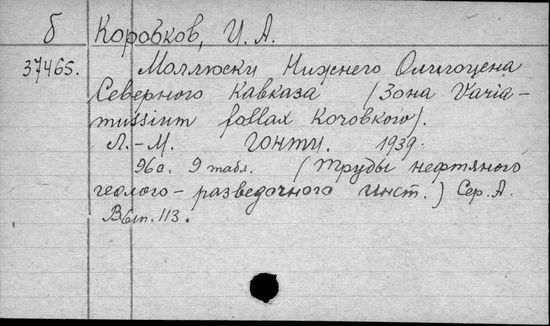 б Коробков, И. А.
37465. Моллюски Нижнего Олигоцена
Северного Кавказа (Зона Varia-
mussium fallax Коробкого).
Л.-М. ГОНТИ. 1939.
96 с. 9 табл. (Труды нефтяного
геолого-разведочного инст.) Сер. А.
Вып. 113.